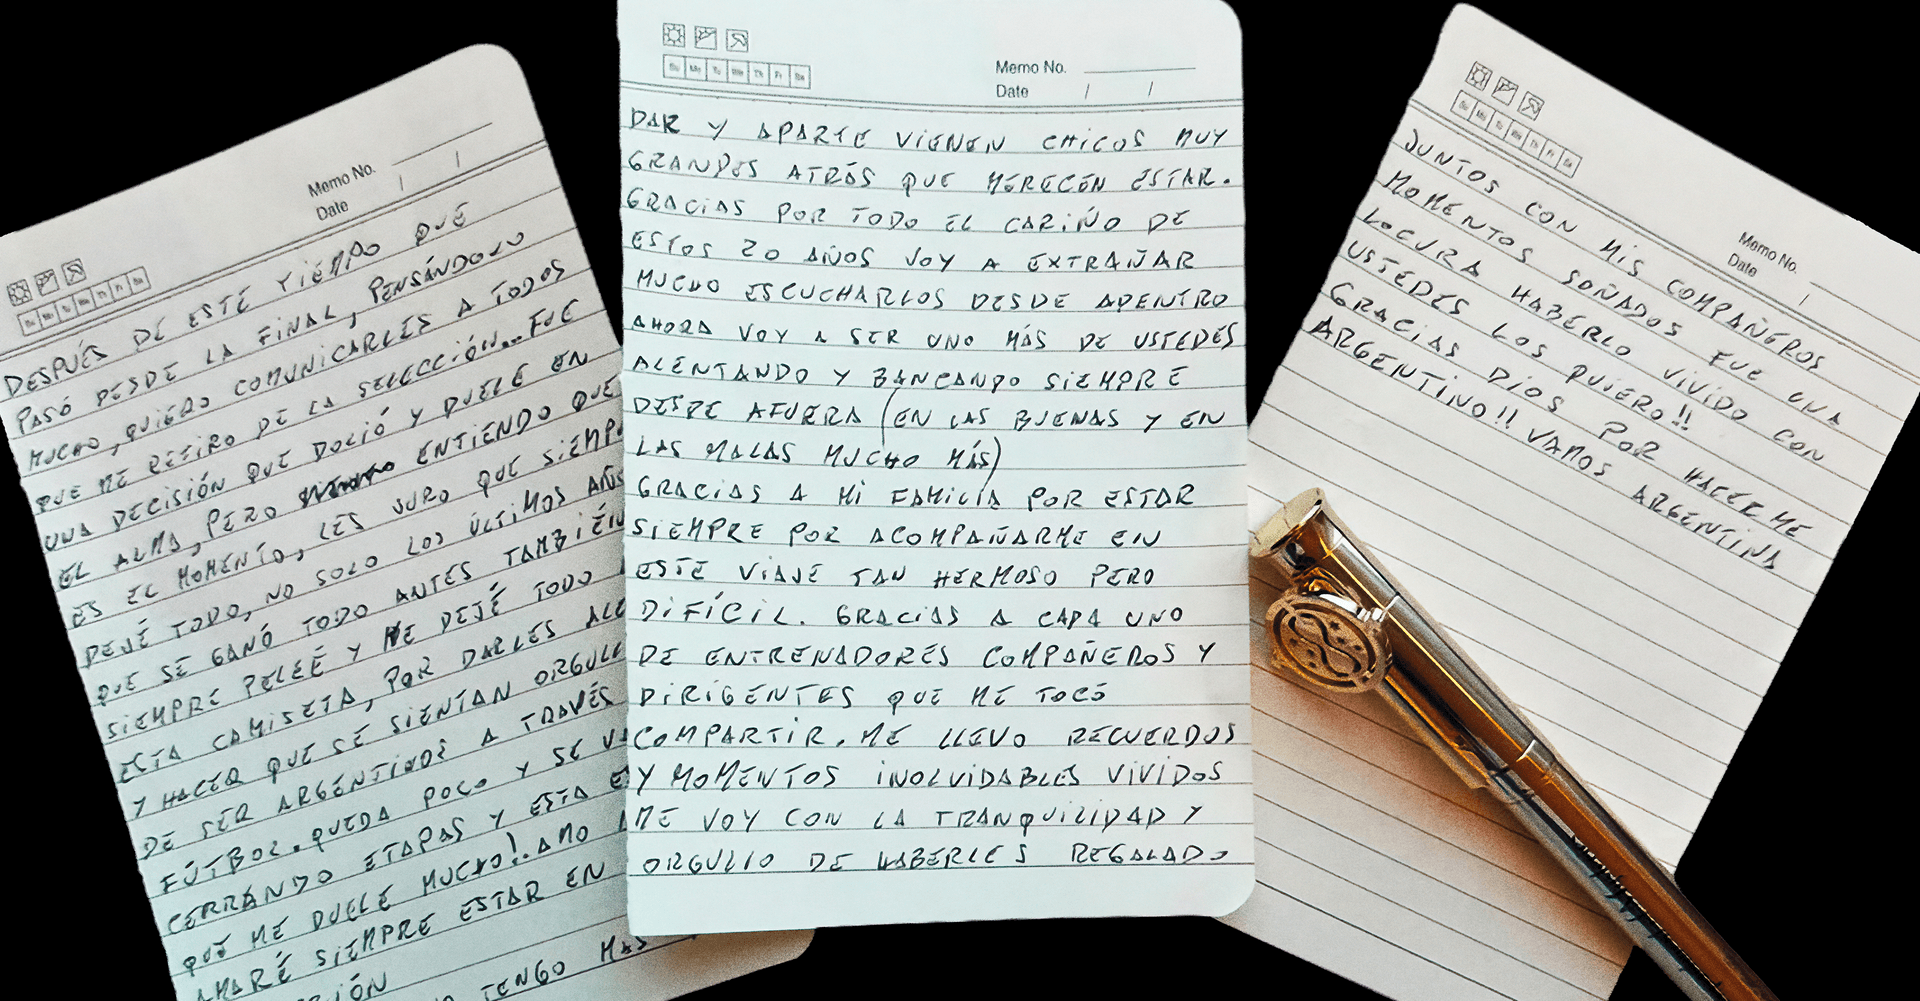 Memo No.
Date / /
DESPUÉS DE ESTE TIEMPO QUE
PASÓ DESDE LA FINAL, PENSÁNDOLO
MUCHO, QUIERO COMUNICARLES A TODOS
QUE ME RETIRO DE LA SELECCIÓN... FUE
UNA DECISIÓN QUE DOLIÓ Y DUELE EN
EL ALMA, PERO ENTIENDO QUE
ES EL MOMENTO, LES JURO QUE SIEMPR
DEJÉ TODO, NO SOLO LOS ÚLTIMOS AÑOS
QUE SE GANÓ TODO ANTES TAMBIÉN
SIEMPRE PELEÉ Y ME DEJÉ TODO
ESTA CAMISETA, POR DARLES ALE
Y HACER QUE SE SIENTAN ORGULL
DE SER ARGENTINOS A TRAVÉS
FÚTBOL. QUEDA POCO Y SE VA
CERRANDO ETAPAS Y ESTA E
QUE ME DUELE MUCHO!. AMO
AMARÉ SIEMPRE ESTAR EN
CIÓN
TENGO MAS
Su Mo Tu We Th Fr Sa
Memo No.
Date / /
DAR Y APARTE VIENEN CHICOS MUY
GRANDES ATRÁS QUE MERECEN ESTAR.
GRACIAS POR TODO EL CARIÑO DE
ESTOS 20 AÑOS VOY A EXTRAÑAR
MUCHO ESCUCHARLOS DESDE ADENTRO
AHORA VOY A SER UNO MÁS DE USTEDES
ALENTANDO Y BANCANDO SIEMPRE
DESDE AFUERA (EN LAS BUENAS Y EN
LAS MALAS MUCHO MÁS)
GRACIAS A MI FAMILIA POR ESTAR
SIEMPRE POR ACOMPAÑARME EN
ESTE VIAJE TAN HERMOSO PERO
DIFÍCIL. GRACIAS A CADA UNO
DE ENTRENADORES COMPAÑEROS Y
DIRIGENTES QUE ME TOCÓ
COMPARTIR. ME LLEVO RECUERDOS
Y MOMENTOS INOLVIDABLES VIVIDOS
ME VOY CON LA TRANQUILIDAD Y
ORGULLO DE HABERLES REGALADO
Memo No.
Date /
JUNTOS CON MIS COMPAÑEROS
MOMENTOS SOÑADOS FUE UNA
LOCURA HABERLO VIVIDO CON
USTEDES LOS QUIERO!!
GRACIAS DIOS POR HACERME
ARGENTINO!! VAMOS ARGENTINA